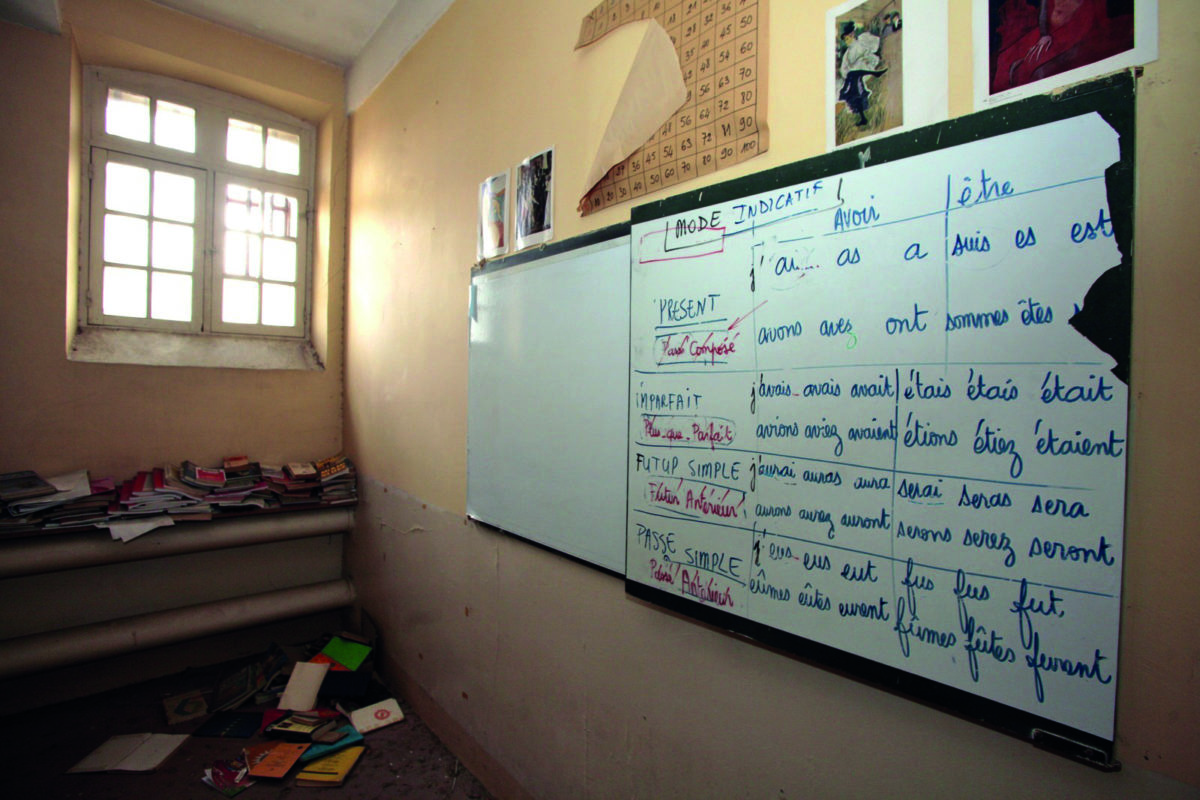 28 40
45 50
60
56 63 70
56 64 72 80
36 45 54 63 72 90
20 30 40 50 60 70 80 90 100
MODE INDICATIF
Avoir être
j'ai as a suis es est
PRESENT
Passé Composé
avons avez ont sommes êtes
IMPARFAIT
j'avais avais avait étais étais était
Plus-que-Parfait
avions aviez avaient étions étiez étaient
FUTUR SIMPLE
j'aurai auras aura serai seras sera
Futur Antérieur
aurons aurez auront serons serez seront
PASSE SIMPLE
j'eus eus eut fus fus fut
Passé Antérieur
eûmes eûtes eurent fûmes fûtes furent